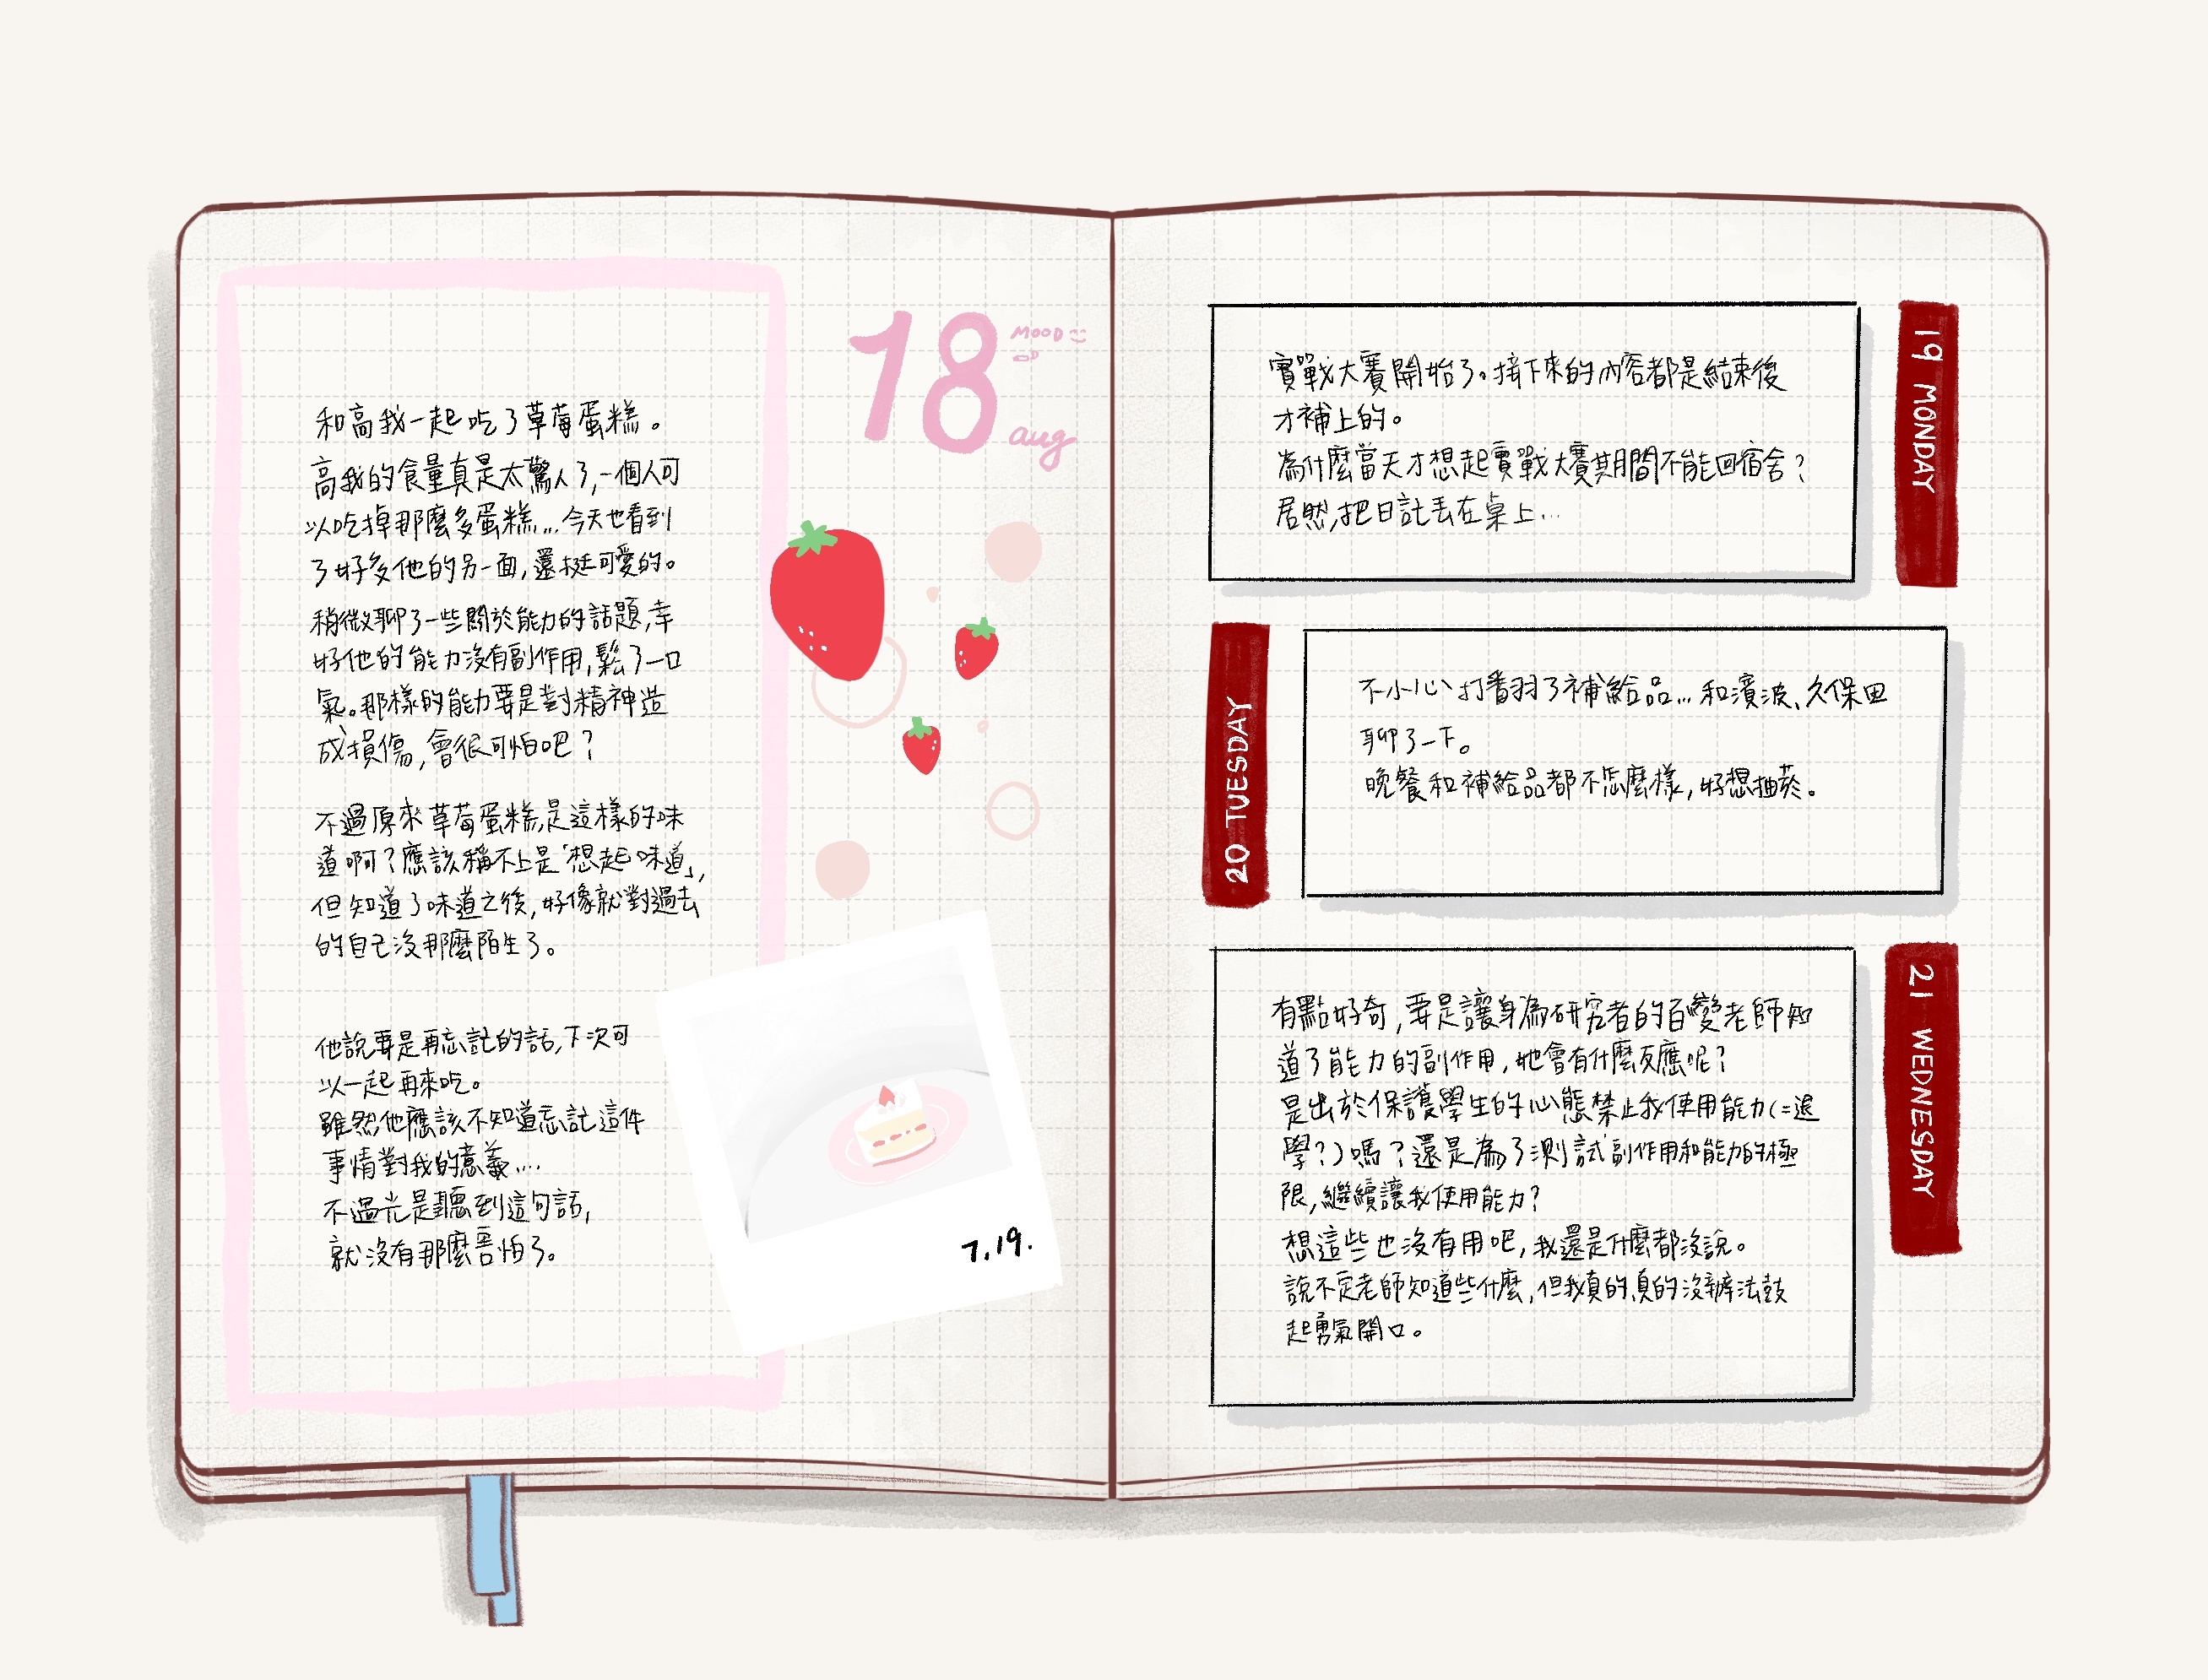 18
MOOD
aug
和高我一起吃了草莓蛋糕。
高我的食量真是太驚人了,一個人可
以吃掉那麼多蛋糕...今天也看到
了好多他的另一面,還挺可愛的。
稍微聊了一些關於能力的話題,幸
好他的能力沒有副作用,鬆了一口
氣。那樣的能力要是對精神造
成損傷,會很可怕吧?
不過原來草莓蛋糕是這樣的味
道啊?應該稱不上是「想起味道」,
但知道了味道之後,好像就對過去
的自己沒那麼陌生了。
他說要是再忘記的話,下次可
以一起再來吃。
雖然他應該不知道忘記這件
事情對我的意義...
不過光是聽到這句話,
就沒有那麼害怕了。
7.19.
19 MONDAY
實戰大賽開始了。接下來的內容都是結束後
才補上的。
為什麼當天才想起實戰大賽期間不能回宿舍?
居然把日記丟在桌上...
20 TUESDAY
不小心打翻了補給品...和濱波、久保田
聊了一下。
晚餐和補給品都不怎麼樣,好想抽菸。
21 WEDNESDAY
有點好奇,要是讓身為研究者的百變老師知
道了能力的副作用,她會有什麼反應呢?
是出於保護學生的心態禁止我使用能力(=退
學?)嗎?還是為了測試副作用和能力的極
限,繼續讓我使用能力?
想這些也沒有用吧,我還是什麼都沒說。
說不定老師知道些什麼,但我真的真的沒辦法鼓
起勇氣開口。